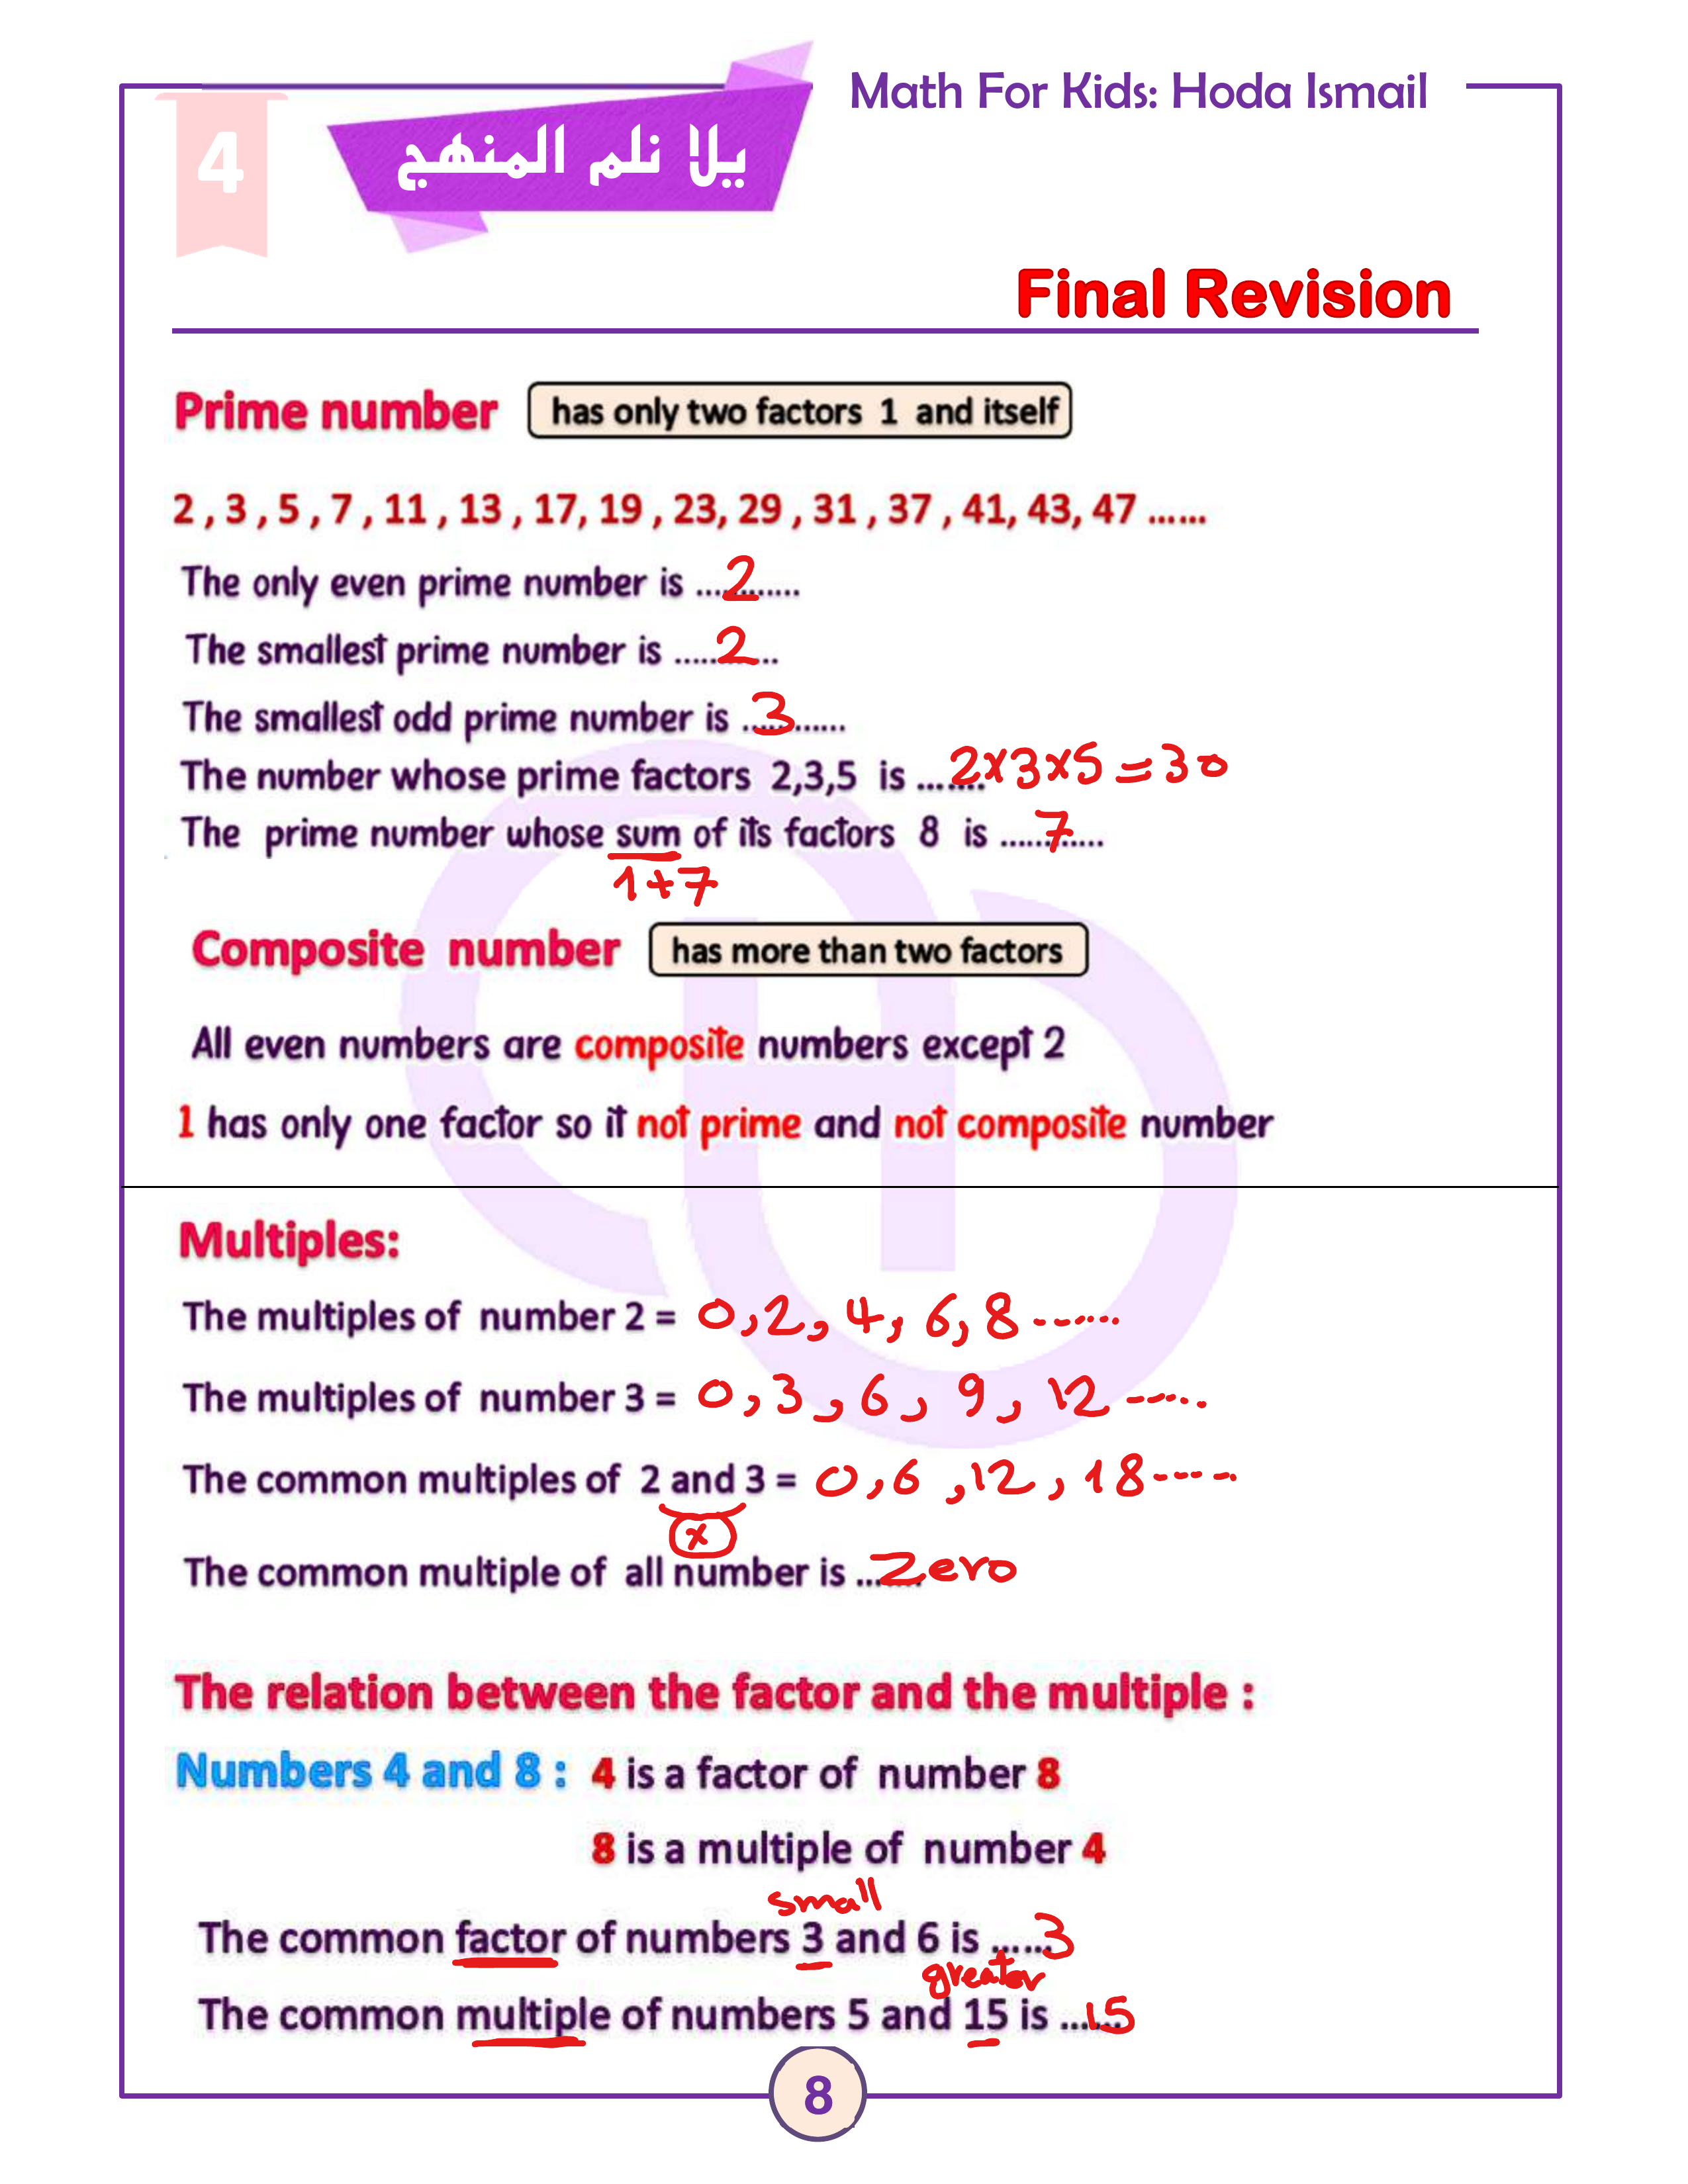 Math For Kids: Hoda Ismail
4
يلا نلم المنهج
Final Revision
Prime number has only two factors 1 and itself
2 , 3 , 5 , 7 , 11 , 13 , 17, 19 , 23, 29 , 31 , 37 , 41, 43, 47 ......
The only even prime number is ....2........
The smallest prime number is .....2....
The smallest odd prime number is ...3......
The number whose prime factors 2,3,5 is ... 2x3x5=30
The prime number whose sum of its factors 8 is ......7.....
1+7
Composite number has more than two factors
All even numbers are composite numbers except 2
1 has only one factor so it not prime and not composite number
Multiples:
The multiples of number 2 = 0,2, 4, 6, 8 ------
The multiples of number 3 = 0, 3, 6, 9, 12 -----
The common multiples of 2 and 3 = 0,6 ,12, 18----
x
The common multiple of all number is ...Zero
The relation between the factor and the multiple :
Numbers 4 and 8 : 4 is a factor of number 8
8 is a multiple of number 4
small
The common factor of numbers 3 and 6 is ......3
greater
The common multiple of numbers 5 and 15 is ...15
8